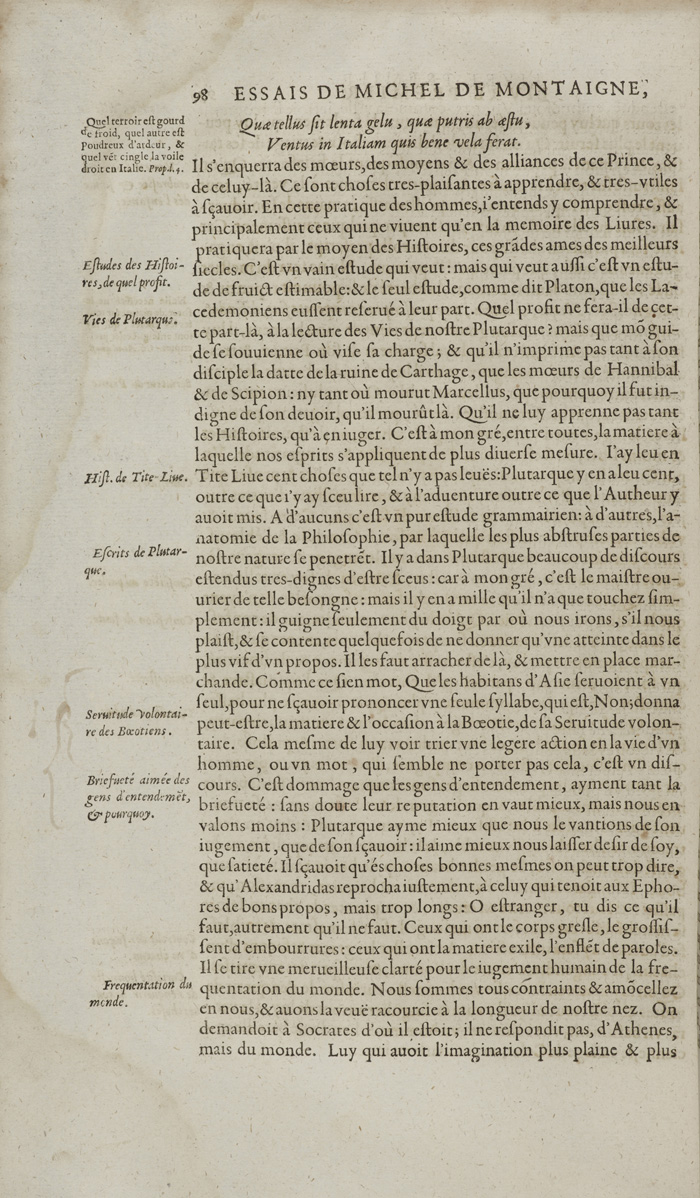 98 ESSAIS DE MICHEL DE MONTAIGNE,
Quel terroir eſt gourd
de froid, quel autre eſt
poudreux d'ardeur, &
quel vẽt cingle la voile
droit en Italie. Prop. l. 4.
Quæ tellus ſit lenta gelu, quæ putris ab æſtu,
Ventus in Italiam quis bene vela ferat.
Il s'enquerra des mœurs, des moyens & des alliances de ce Prince, &
de celuy-là. Ce ſont choſes tres-plaiſantes à apprendre, & tres-vtiles
à ſçauoir. En cette pratique des hommes, i'entends y comprendre, &
principalement ceux qui ne viuent qu'en la memoire des Liures. Il
pratiquera par le moyen des Hiſtoires, ces grãdes ames des meilleurs
Eſtudes des Hiſtoi-
res, de quel profit.
ſiecles. C'eſt vn vain eſtude qui veut: mais qui veut auſſi c'eſt vn eſtu-
de de fruict eſtimable: & le ſeul eſtude, comme dit Platon, que les La-
Vies de Plutarque.
cedemoniens euſſent reſerué à leur part. Quel profit ne fera-il de cet-
te part-là, à la lecture des Vies de noſtre Plutarque? mais que mõ gui-
de ſe ſouuienne où viſe ſa charge; & qu'il n'imprime pas tant à ſon
diſciple la datte de la ruine de Carthage, que les mœurs de Hannibal
& de Scipion: ny tant où mourut Marcellus, que pourquoy il fut in-
digne de ſon deuoir, qu'il mourût là. Qu'il ne luy apprenne pas tant
les Hiſtoires, qu'à en iuger. C'eſt à mon gré, entre toutes, la matiere à
laquelle nos eſprits s'appliquent de plus diuerſe meſure. I'ay leu en
Hiſt. de Tite-Liue.
Tite Liue cent choſes que tel n'y a pas leuës: Plutarque y en a leu cent,
outre ce que i'y ay ſceu lire, & à l'aduenture outre ce que l'Autheur y
auoit mis. A d'aucuns c'eſt vn pur eſtude grammairien: à d'autres, l'a-
natomie de la Philoſophie, par laquelle les plus abſtruſes parties de
Eſcrits de Plutar-
que.
noſtre nature ſe penetrẽt. Il y a dans Plutarque beaucoup de diſcours
eſtendus tres-dignes d'eſtre ſceus: car à mon gré, c'eſt le maiſtre ou-
urier de telle beſongne: mais il y en a mille qu'il n'a que touchez ſim-
plement: il guigne ſeulement du doigt par où nous irons, s'il nous
plaiſt, & ſe contente quelquefois de ne donner qu'vne atteinte dans le
plus vif d'vn propos. Il les faut arracher de là, & mettre en place mar-
chande. Comme ce ſien mot, Que les habitans d'Aſie ſeruoient à vn
ſeul, pour ne ſçauoir prononcer vne ſeule ſyllabe, qui eſt, Non; donna
Seruitude volontai-
re des Bœotiens.
peut-eſtre, la matiere & l'occaſion à la Bœotie, de ſa Seruitude volon-
taire. Cela meſme de luy voir trier vne legere action en la vie d'vn
homme, ou vn mot, qui ſemble ne porter pas cela, c'eſt vn diſ-
Briefueté aimée des
gens d'entendemẽt,
& pourquoy.
cours. C'eſt dommage que les gens d'entendement, ayment tant la
briefueté: ſans doute leur reputation en vaut mieux, mais nous en
valons moins: Plutarque ayme mieux que nous le vantions de ſon
iugement, que de ſon ſçauoir: il aime mieux nous laiſſer deſir de ſoy,
que ſatieté. Il ſçauoit qu'és choſes bonnes meſmes on peut trop dire,
& qu'Alexandridas reprocha iuſtement, à celuy qui tenoit aux Epho-
res de bons propos, mais trop longs: O eſtranger, tu dis ce qu'il
faut, autrement qu'il ne faut. Ceux qui ont le corps greſle, le groſſiſ-
ſent d'embourrures: ceux qui ont la matiere exile, l'enflẽt de paroles.
Il ſe tire vne merueilleuſe clarté pour le iugement humain de la fre-
Frequentation du
monde.
quentation du monde. Nous ſommes tous contraints & amõcellez
en nous, & auons la veuë racourcie à la longueur de noſtre nez. On
demandoit à Socrates d'où il eſtoit; il ne reſpondit pas, d'Athenes,
mais du monde. Luy qui auoit l'imagination plus plaine & plus